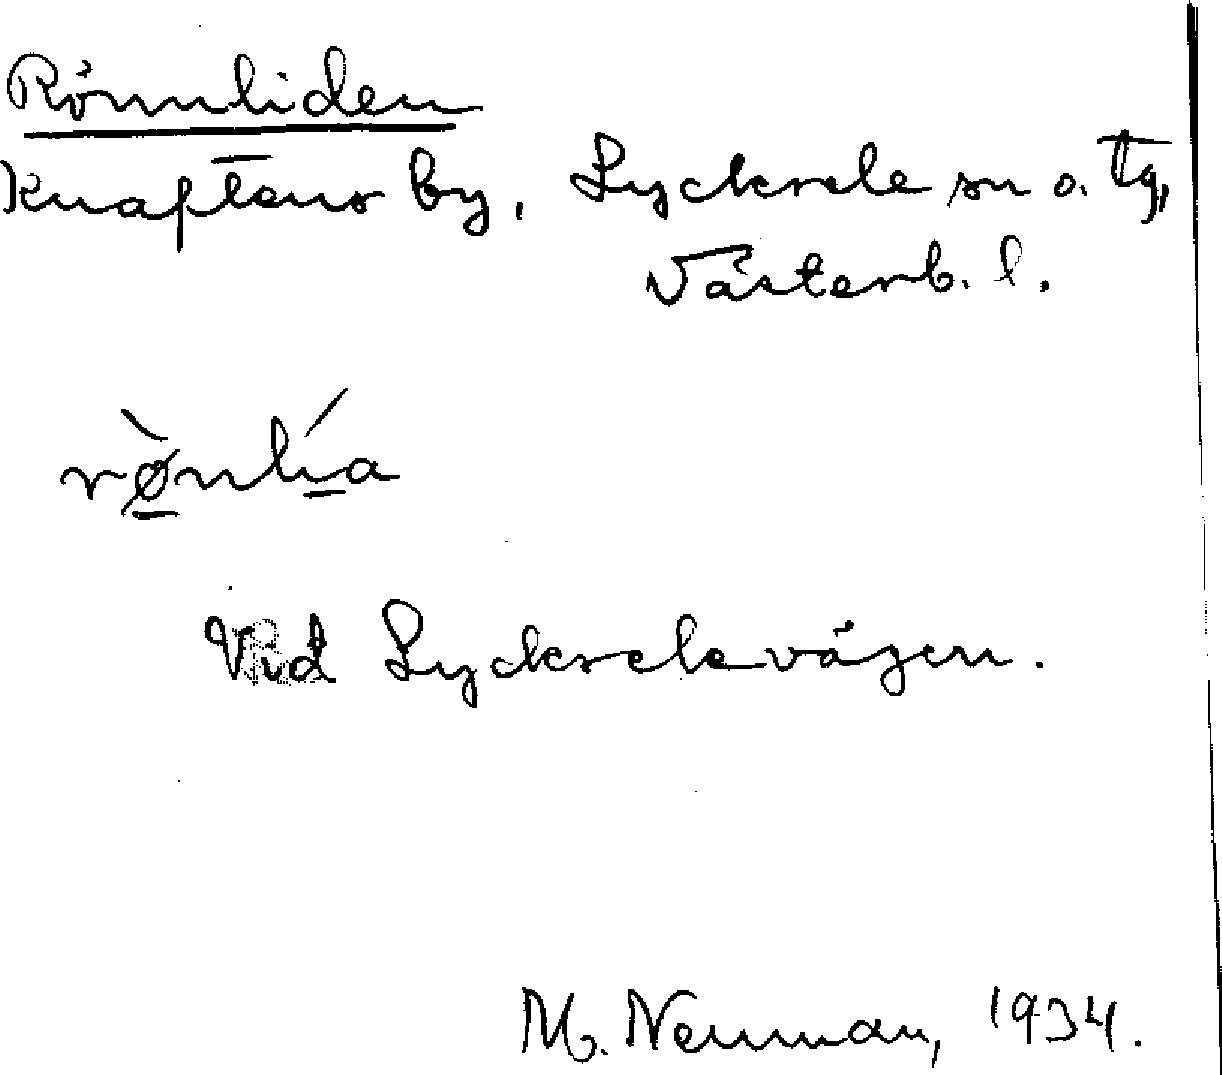 Rönnliden
Knaftens by, Lycksele sn o. tg,
Västerb. l.
rø̀nlı́a
Vid Lyckselevägen.
M. Nenman, 1934.